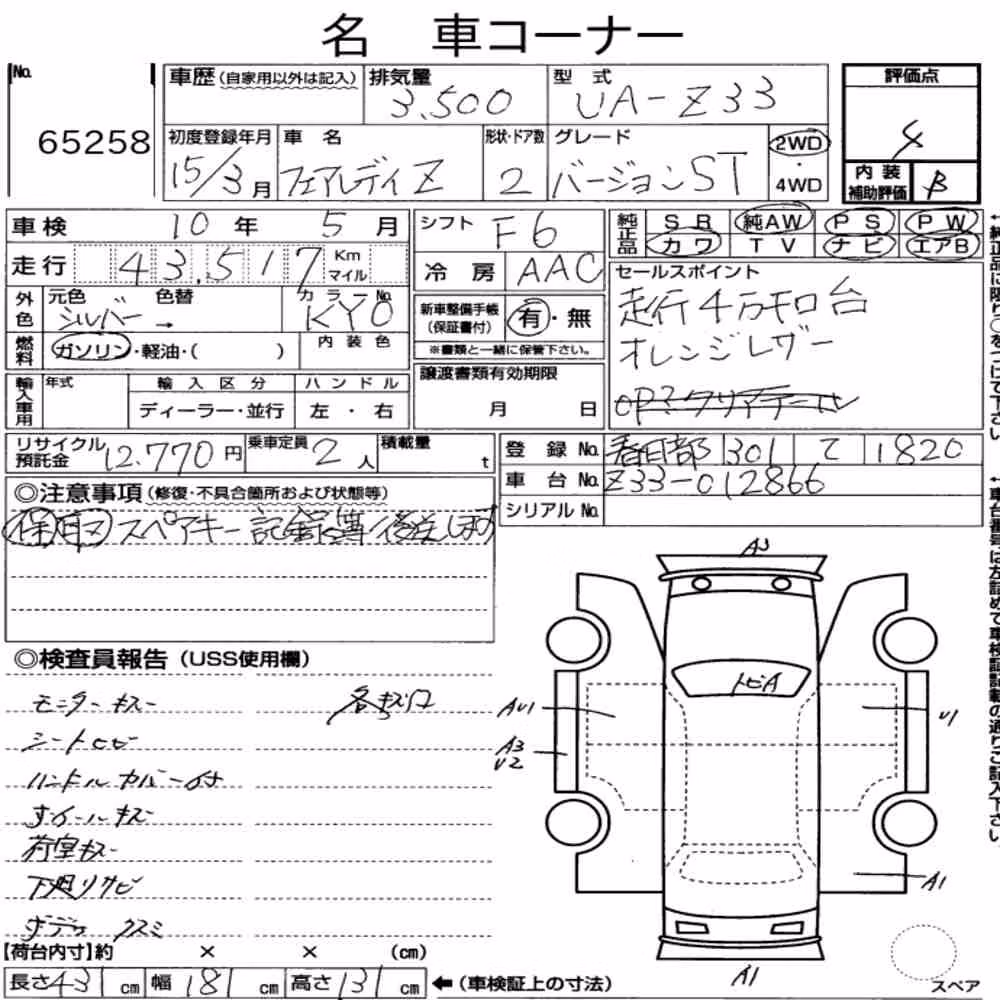 名 車コーナー
No. 65258
車歴(自家用以外は記入)
排気量 3,500
型式 UA-Z33
評価点 4
初度登録年月 15/3月
車名 フェアレディZ
形状・ドア数 2
グレード バージョンST
2WD・4WD
内装補助評価 B
車検 10年5月
シフト F6
純正品 SR 純AW PS PW
カワ TV ナビ エアB
走行 43,517 Km マイル
冷房 AAC
セールスポイント
走行4万キロ台
オレンジレザー
OP?クリアテール
外色 元色 シルバー 色替 → カラーNo. KY0
新車整備手帳(保証書付) 有・無
※書類と一緒に保管下さい。
燃料 ガソリン・軽油・( )
内装色
譲渡書類有効期限
月 日
輸入車用 年式 輸入区分 ハンドル
ディーラー・並行 左・右
リサイクル預託金 12,770円
乗車定員 2人
積載量 t
登録No. 春日部 301 て 1820
車台No. Z33-012866
シリアルNo.
◎注意事項(修復・不具合箇所および状態等)
保 取 スペアキー 記録簿 後送します
◎検査員報告(USS使用欄)
モニターキズ 各キズ凹
シートコゲ
ハンドルカバー付
ホイールキズ
荷室キズ
下廻りサビ
ボデー クスミ
A3
トビA
AU1
A3
U2
U1
A1
A1
スペア
【荷台内寸】約 × × (cm)
長さ431cm 幅181cm 高さ131cm ←(車検証上の寸法)